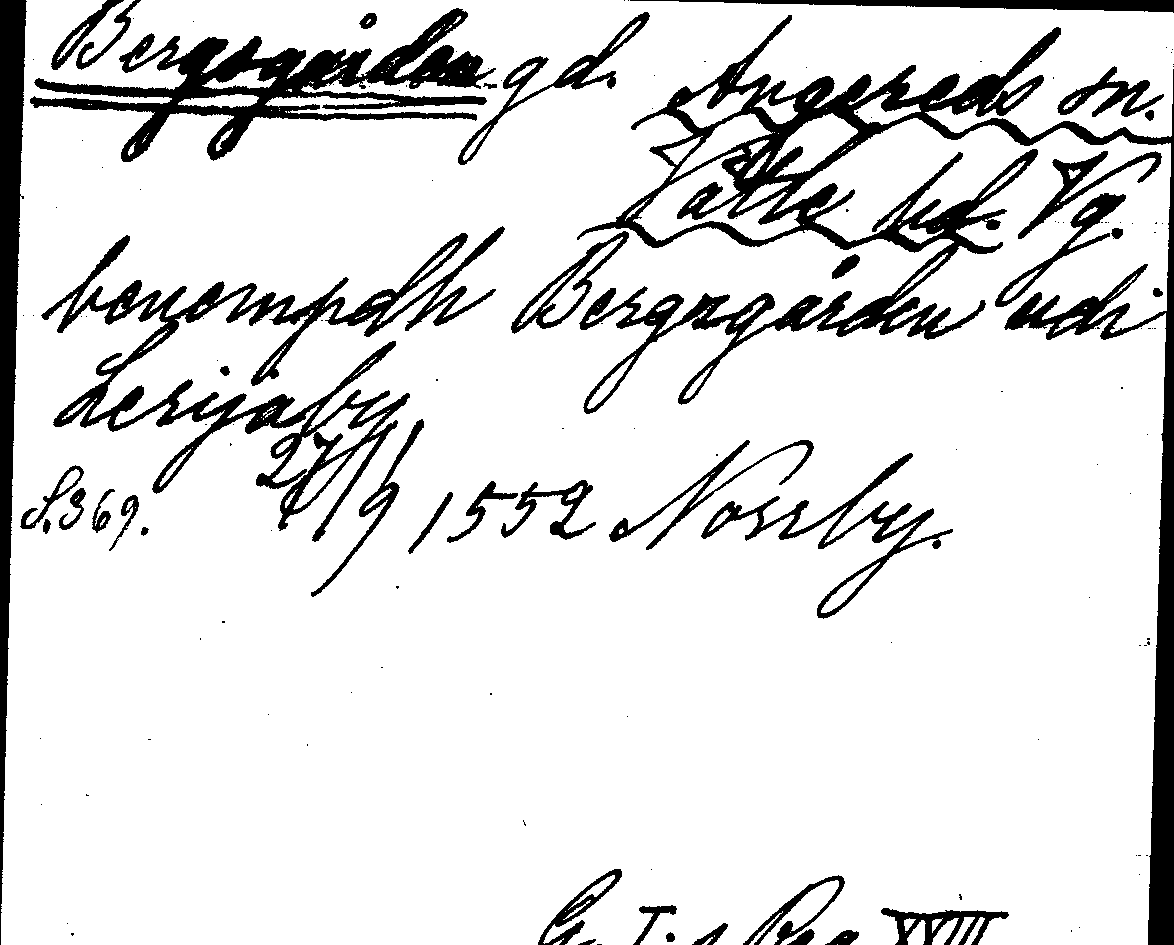 Bergsgården gd. Angereds sn.
Vättle hd. Vg.
benempdh Bergsgården udi
Lerijaby
S. 369. 27/9 1552 Norrby.
G. I:s Reg XVIII